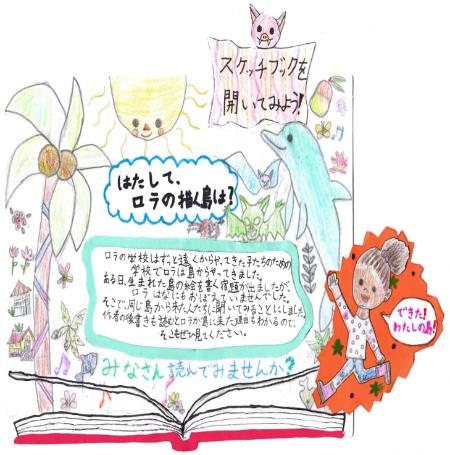 スケッチブックを
開いてみよう!
はたして、
ロラの描く島は?
ロラの学校はずっと遠くからやってきた子たちのための
学校でロラは島からやってきました。
ある日、生まれた島の絵を書く宿題が出ましたが、
ロラはなにもおぼえていませんでした。
そこで、同じ島から来た人たちに聞いてみることにしました。
作者の後書きも読むとロラが島に来た理由もわかるので、
そこもぜひ見てください。
みなさん読んでみませんか?
できた!
わたしの島!